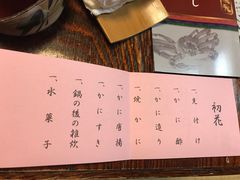 初花
一、先付け
一、かに酢
一、かに造り
一、焼かに
一、かに唐揚
一、かにすき
一、鍋の後の雑炊
一、水菓子
し